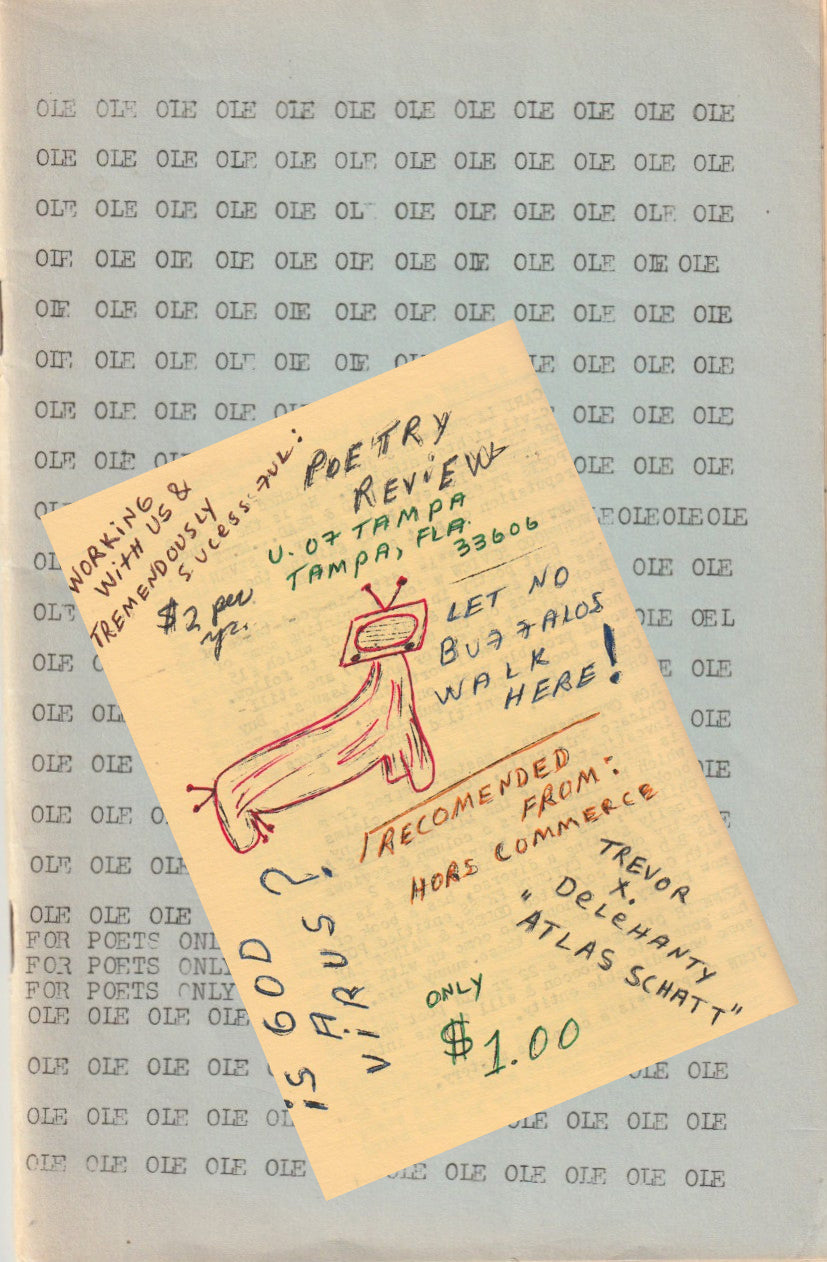 OLE OLE OLE OLE OLE OLE OLE OLE OLE OLE OLE OLE
OLE OLE OLE OLE OLE OLE OLE OLE OLE OLE OLE OLE
OLE OLE OLE OLE OLE OL OLE OLE OLE OLE OLE OLE
OLE OLE OLE OLE OLE OLE OLE OLE OLE OLE OLE OLE
OLE OLE OLE OLE OLE OLE OLE OLE OLE OLE OLE OLE
OLE OLE OLE OLE OLE OLE OL LE OLE OLE OLE
OLE OLE OLE OLE OL OLE OLE OLE
OLE OLE OLE OLE OLE
OL EOLEOLEOLE
OL OLE OLE
OLE OLE OEL
OLE OLE
OLE OL OLE
OLE OLE OLE
OLE OLE
OLE OLE OLE
OLE OLE OLE
FOR POETS ONL
FOR POETS ONLY
FOR POETS ONLY
OLE OLE OLE OLE
OLE OLE OLE OLE OLE OLE
OLE OLE OLE OLE OL OLE OLE OLE OLE
OLE OLE OLE OLE OLE OLE OLE OLE OLE OLE OLE
WORKING
WITH US &
TREMENDOUSLY
SUCESSFUL:
POETRY
REVIEW
U. OF TAMPA
TAMPA, FLA.
33606
$2 per
yr.
LET NO
BUFFALOS
WALK
HERE!
RECOMENDED
FROM:
HORS COMMERCE
TREVOR
X.
DELEHANTY
"ATLAS SCHATT"
ONLY
$1.00
IS GOD
A
VIRUS?